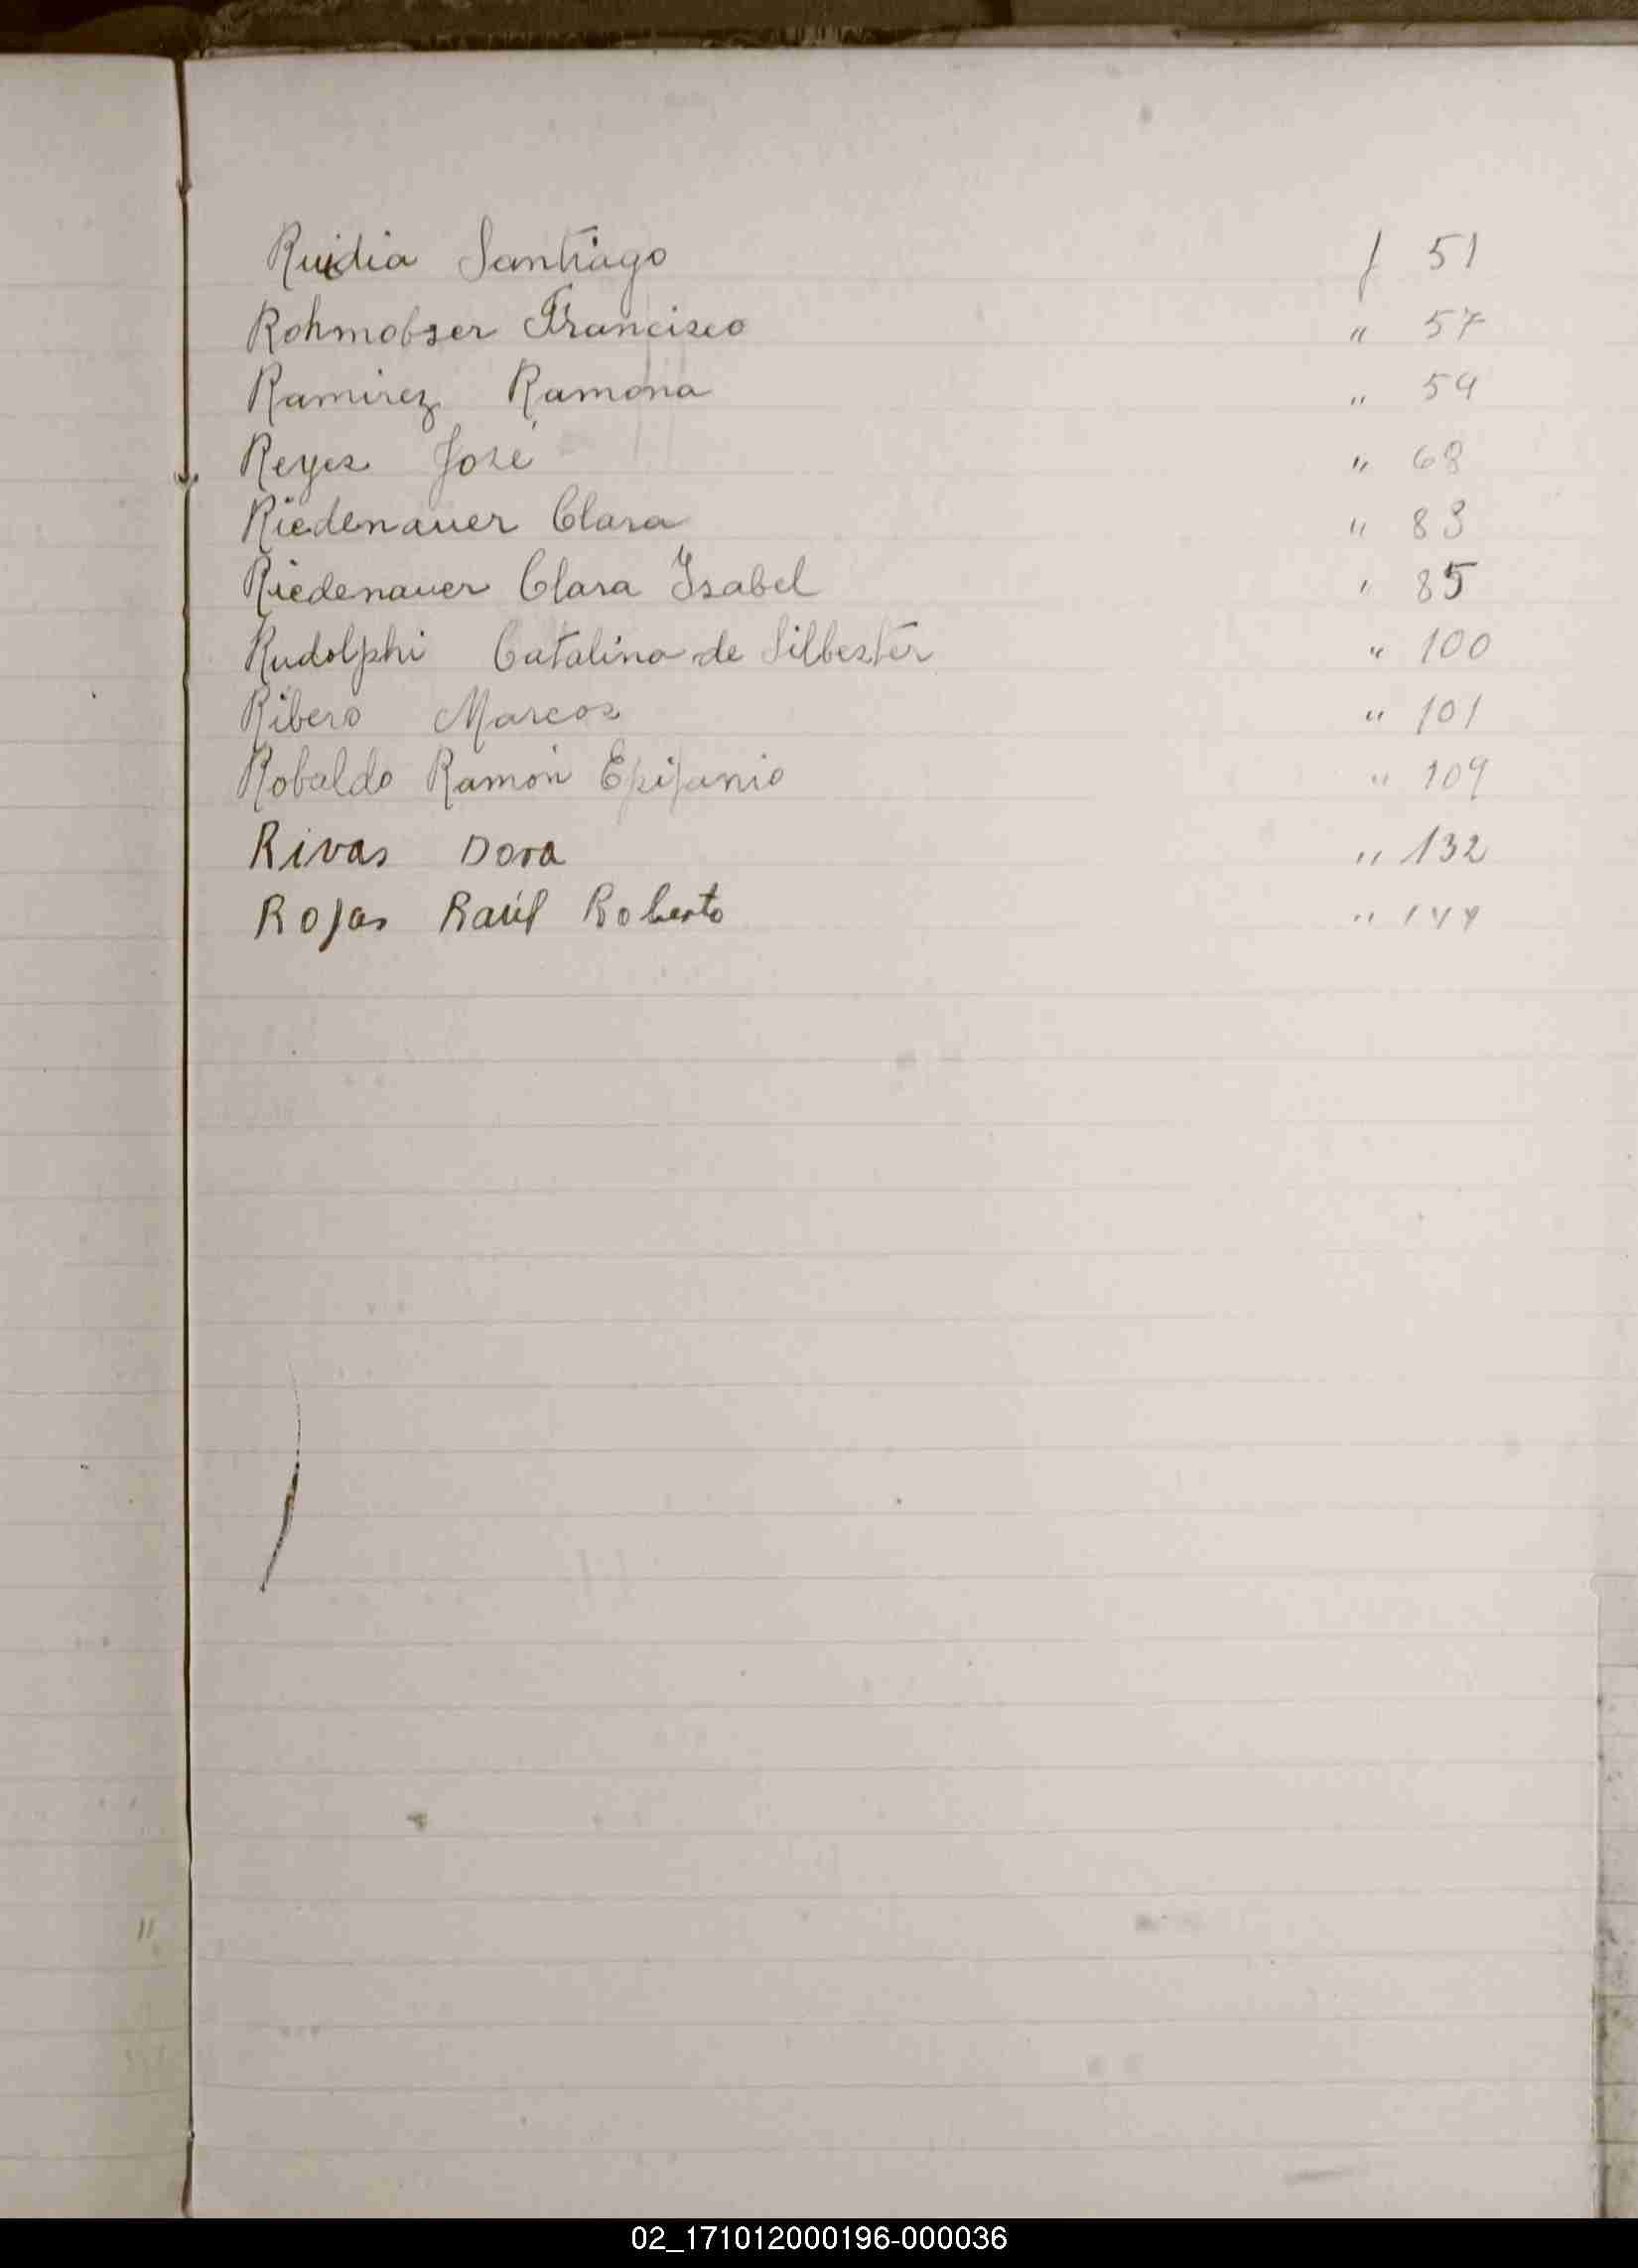 Ruidia Santiago f 51
Rohmobser Francisco " 57
Ramirez Ramona " 59
Reyes José " 68
Riedenauer Clara " 83
Riedenauer Clara Isabel " 85
Rudolphi Catalina de Silbester " 100
Ribero Marcos " 101
Robaldo Ramón Epifanio " 109
Rivas Dora " 132
Rojas Raúl Roberto " 144
"
02_171012000196-000036